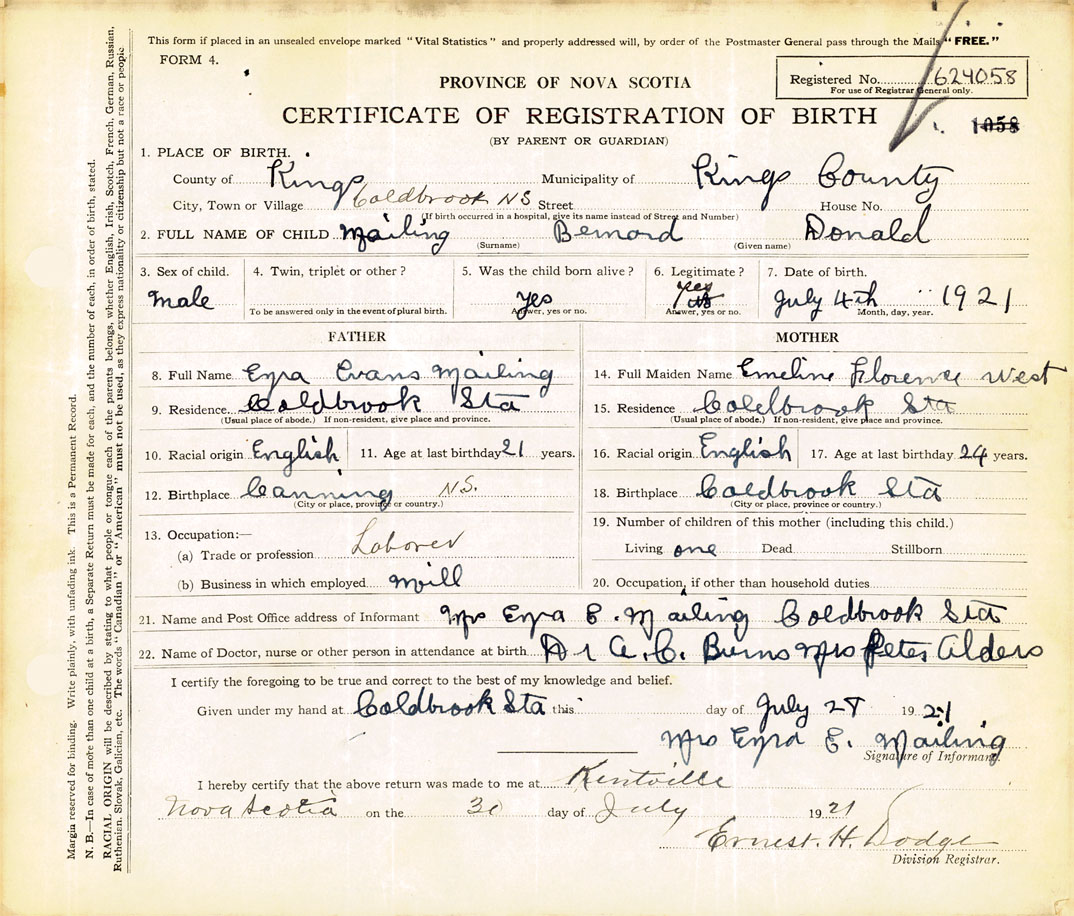 This form if placed in an unsealed envelope marked "Vital Statistics" and properly addressed will, by order of the Postmaster General pass through the Mails "FREE."
FORM 4.
PROVINCE OF NOVA SCOTIA
Registered No. 624058
For use of Registrar General only.
CERTIFICATE OF REGISTRATION OF BIRTH
1058
(BY PARENT OR GUARDIAN)
1. PLACE OF BIRTH.
County of Kings Municipality of Kings County
City, Town or Village Coldbrook NS Street House No.
(If birth occurred in a hospital, give its name instead of Street and Number)
2. FULL NAME OF CHILD Mailing Bernard Donald
(Surname) (Given name)
3. Sex of child. 4. Twin, triplet or other? 5. Was the child born alive? 6. Legitimate? 7. Date of birth.
male yes yes July 4th 1921
To be answered only in the event of plural birth. Answer, yes or no. Answer, yes or no. Month, day, year.
FATHER MOTHER
8. Full Name Ezra Evans Mailing 14. Full Maiden Name Emeline Florence West
9. Residence Coldbrook Sta 15. Residence Coldbrook Sta
(Usual place of abode.) If non-resident, give place and province. (Usual place of abode.) If non-resident, give place and province.
10. Racial origin English 11. Age at last birthday 21 years. 16. Racial origin English 17. Age at last birthday 24 years.
12. Birthplace Canning N.S. 18. Birthplace Coldbrook Sta
(City or place, province or country.) (City or place, province or country.)
13. Occupation:— 19. Number of children of this mother (including this child.)
(a) Trade or profession Laborer Living one Dead Stillborn
(b) Business in which employed Mill 20. Occupation, if other than household duties
21. Name and Post Office address of Informant Mrs Ezra E. Mailing Coldbrook Sta
22. Name of Doctor, nurse or other person in attendance at birth. Dr A. C. Burns Mrs Peter Alders
I certify the foregoing to be true and correct to the best of my knowledge and belief.
Given under my hand at Coldbrook Sta this day of July 28 1921
Mrs Ezra E. Mailing
Signature of Informant.
I hereby certify that the above return was made to me at Kentville
Nova Scotia on the 30 day of July 1921
Ernest. H. Dodge
Division Registrar.
Margin reserved for binding. Write plainly, with unfading ink. This is a Permanent Record.
N. B.—In case of more than one child at a birth, a Separate Return must be made for each, and the number of each, in order of birth, stated.
RACIAL ORIGIN will be described by stating to what people or tongue each of the parents belongs, whether English, Irish, Scotch, French, German, Russian,
Ruthenian, Slovak, Galician, etc. The words "Canadian" or "American" must not be used, as they express nationality or citizenship but not a race or people